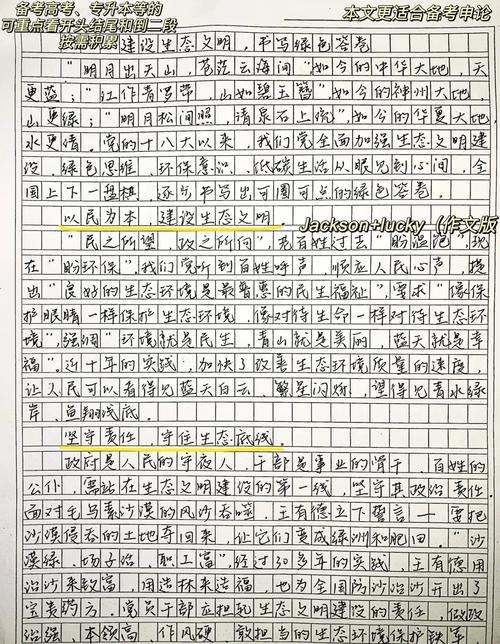 备考高考、专升本等的
可重点看开头结尾和倒二段
按需积累
本文更适合备考申论
建设生态文明，书写绿色答卷
“明月出天山，苍茫云海间”如今的中华大地，天
更蓝；“江作青罗带，山如碧玉簪”如今的神州大地，
山更绿；“明月松间照，清泉石上流”如今的华夏大地，
水更清。党的十八大以来，我们党全面加强生态文明建
设，绿色思维、环保意识、低碳生活从眼见到心间，全
国上下一盘棋，逐步书写出可圈可点的绿色答卷。
以民为本，建设生态文明。
Jackson+lucky（作文版
“民之所望，政之所向”，老百姓过去“盼温饱”现
在“盼环保”，我们党听到百姓呼声，顺应人民心声，提
出“良好的生态环境是最普惠的民生福祉”，要求“像保
护眼睛一样保护生态环境，像对待生命一样对待生态环
境”，强调“环境就是民生，青山就是美丽，蓝天就是幸
福”。近十年的实践，加快了改善生态环境质量的速度，
让人民可以看得见蓝天白云、繁星闪烁，望得见青水绿
岸、鱼翔浅底。
坚守责任，守住生态底线。
政府是人民的守夜人，干部是事业的骨干，百姓的
公仆，需站在生态文明建设的第一线，坚守其政治责任。
面对毛乌素沙漠的风沙吞噬，王有德立下誓言——要把
沙漠侵吞的土地夺回来，让它们变成绿洲和肥田。“沙
漠绿、场子活、职工富”，经过30多年的实践，王有德用
治沙来致富，用造林来造福，也为全国防沙治沙开出了
宝贵药方。党员干部应担起生态文明建设的责任，做政
治强、本领高、作风硬、敢担当的生态环境保护铁军